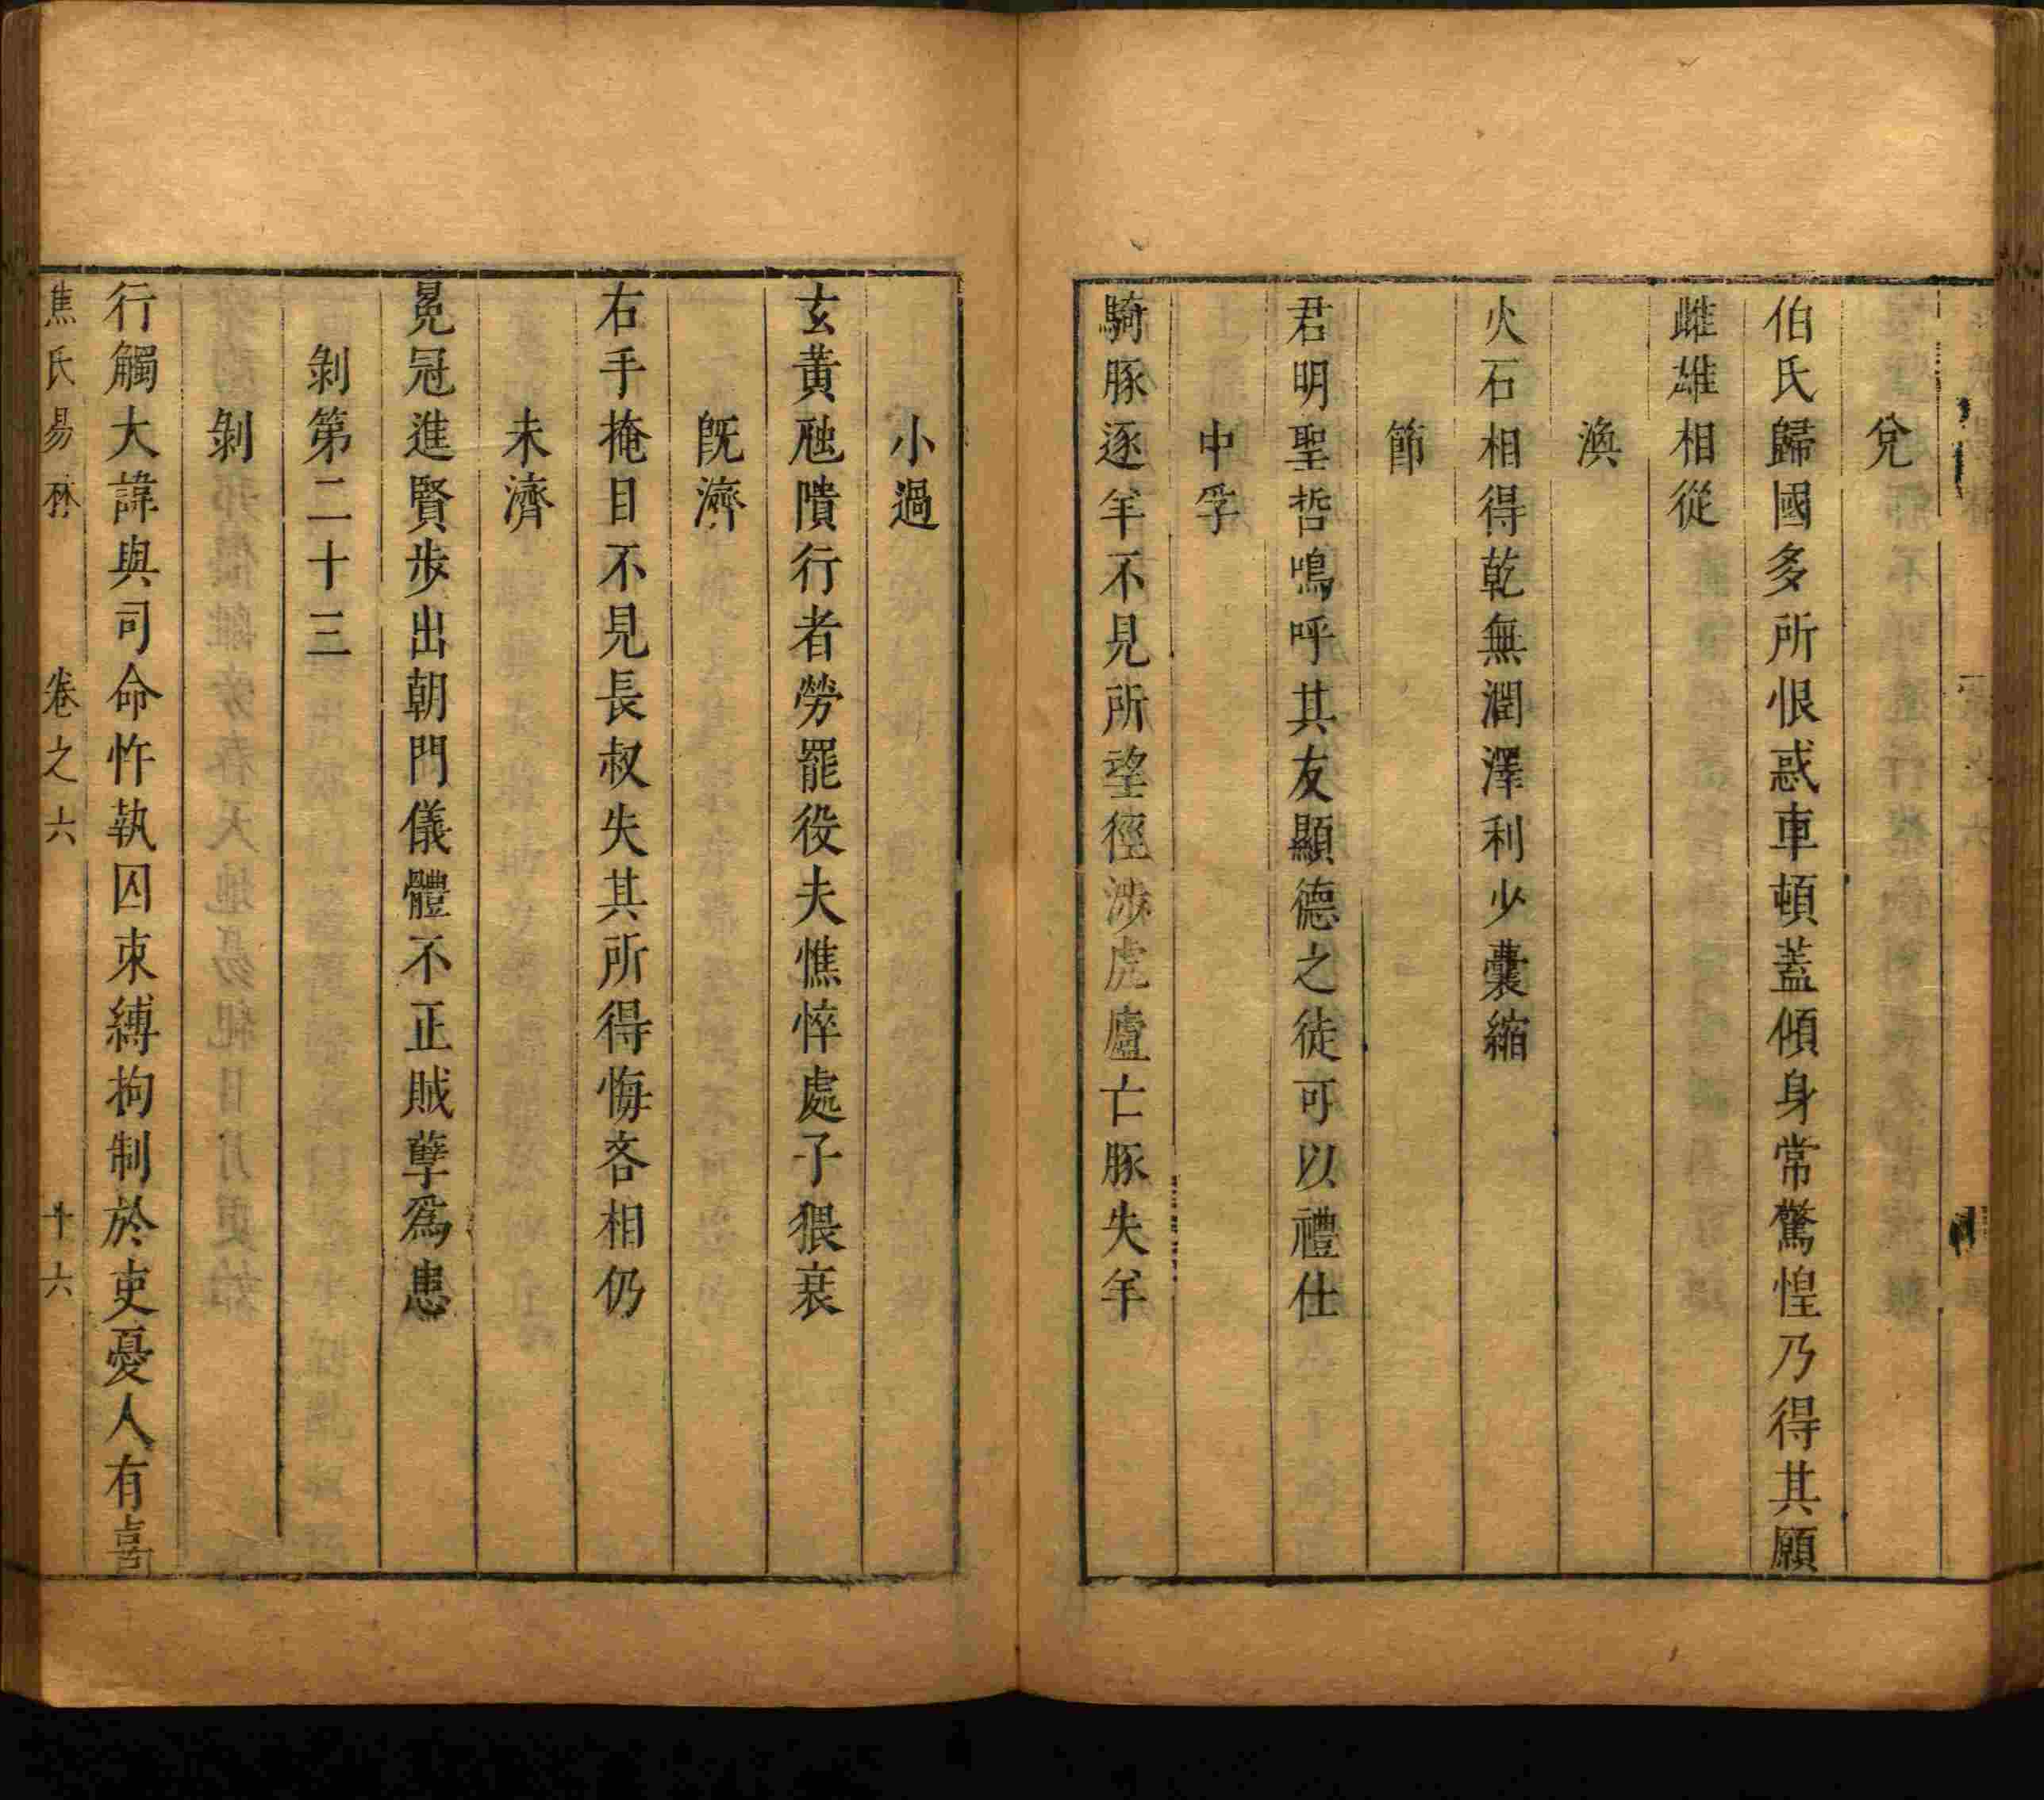 兌
伯氏歸國多所恨惑車頓蓋傾身常驚惶乃得其願
雌雄相從
渙
火石相得乾無潤澤利少囊縮
節
君明聖哲鳴呼其友顯德之徒可以禮仕
中孚
騎豚逐羊不見所望徑涉虎廬亡豚失羊
小過
玄黃虺隤行者勞罷役夫憔悴處子猥衰
既濟
右手掩目不見長叔失其所得悔吝相仍
未濟
冕冠進賢步出朝門儀體不正賊孽為患
剝第二十三
剝
行觸大諱與司命忤執囚束縛拘制於吏憂人有喜
焦氏易林 卷之六 十六